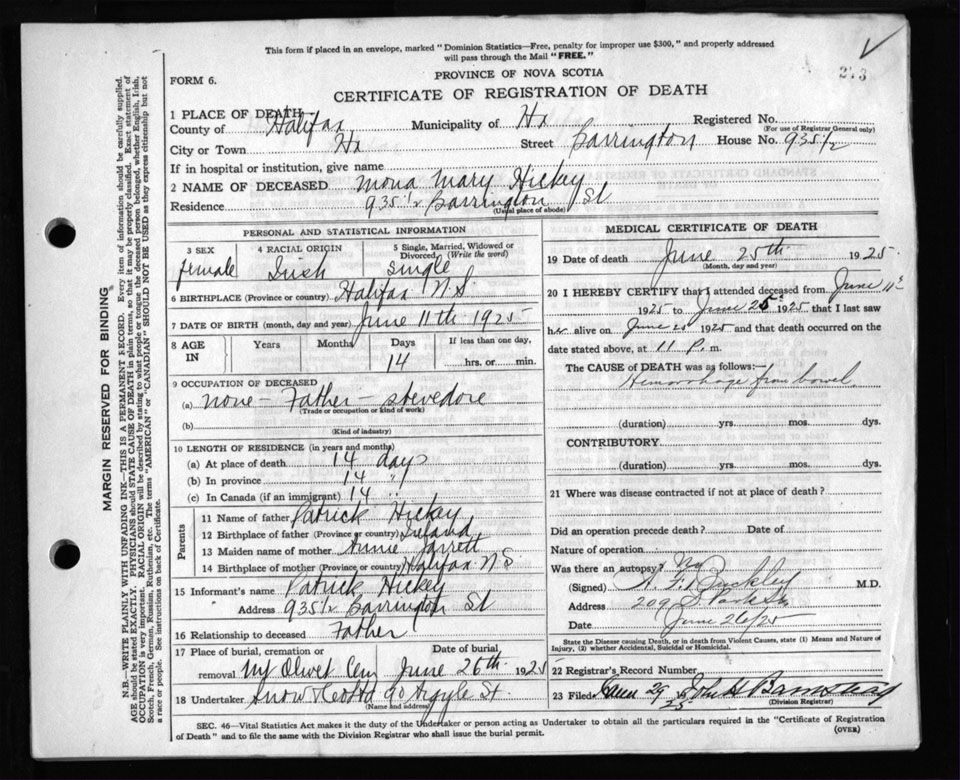 This form if placed in an envelope, marked "Dominion Statistics—Free, penalty for improper use $300," and properly addressed
will pass through the Mail "FREE."
FORM 6.
PROVINCE OF NOVA SCOTIA
273
CERTIFICATE OF REGISTRATION OF DEATH
1 PLACE OF DEATH
County of Halifax Municipality of Hx Registered No.
(For use of Registrar General only)
City or Town Hx Street Barrington House No. 935 1/2
If in hospital or institution, give name
2 NAME OF DECEASED Mona Mary Hickey
Residence 935 1/2 Barrington St
(Usual place of abode)
PERSONAL AND STATISTICAL INFORMATION
3 SEX 4 RACIAL ORIGIN 5 Single, Married, Widowed or
Divorced, (Write the word)
female Irish single
6 BIRTHPLACE (Province or country) Halifax N.S.
7 DATE OF BIRTH (month, day and year) June 11th 1925
8 AGE IN Years Months Days If less than one day,
14 hrs. or min.
9 OCCUPATION OF DECEASED
(a) none - Father - stevedore
(Trade or occupation or kind of work)
(b)
(Kind of industry)
10 LENGTH OF RESIDENCE (in years and months)
(a) At place of death 14 days
(b) In province 14 "
(c) In Canada (if an immigrant) 14 "
Parents
11 Name of father Patrick Hickey
12 Birthplace of father (Province or country) Ireland
13 Maiden name of mother Annie Jarrett
14 Birthplace of mother (Province or country) Halifax N S.
15 Informant's name Patrick Hickey
Address 935 1/2 Barrington St
16 Relationship to deceased Father
17 Place of burial, cremation or Date of burial,
removal Mt Olivet Cem June 26th 1925
18 Undertaker Snow & Co Ltd 90 Argyle St.
(Name and address)
MEDICAL CERTIFICATE OF DEATH
19 Date of death June 25th 1925
(Month, day and year)
20 I HEREBY CERTIFY that I attended deceased from June 11
1925 to June 25 1925 that I last saw
her alive on June 1925 and that death occurred on the
date stated above, at 11 P. m.
The CAUSE of DEATH was as follows:—
Hemorrhage from bowel
(duration) yrs. mos. dys.
CONTRIBUTORY
(duration) yrs. mos. dys.
21 Where was disease contracted if not at place of death?
Did an operation precede death? Date of
Nature of operation
Was there an autopsy? No
(Signed) A. F. Buckley M.D.
Address 209 S. Park St
Date June 26/25
State the Disease causing Death, or in death from Violent Causes, state (1) Means and Nature of
Injury, (2) whether Accidental, Suicidal or Homicidal.
22 Registrar's Record Number
23 Filed June 29 25 John H Barnstead
(Division Registrar)
SEC. 46—Vital Statistics Act makes it the duty of the Undertaker or person acting as Undertaker to obtain all the particulars required in the "Certificate of Registration
of Death" and to file the same with the Division Registrar who shall issue the burial permit.
(OVER)
MARGIN RESERVED FOR BINDING
N.B.—WRITE PLAINLY WITH UNFADING INK—THIS IS A PERMANENT RECORD. Every item of information should be carefully supplied.
AGE should be stated EXACTLY. PHYSICIANS should STATE CAUSE OF DEATH in plain terms, so that it may be properly classified. Exact statement of
OCCUPATION is very important. RACIAL ORIGIN will be described by stating to what people or tongue the deceased person belonged, whether English, Irish,
Scotch, French, German, Russian, Ruthenian, etc. The terms "AMERICAN" or "CANADIAN" SHOULD NOT BE USED as they express citizenship but not
a race or people. See instructions on back of Certificate.